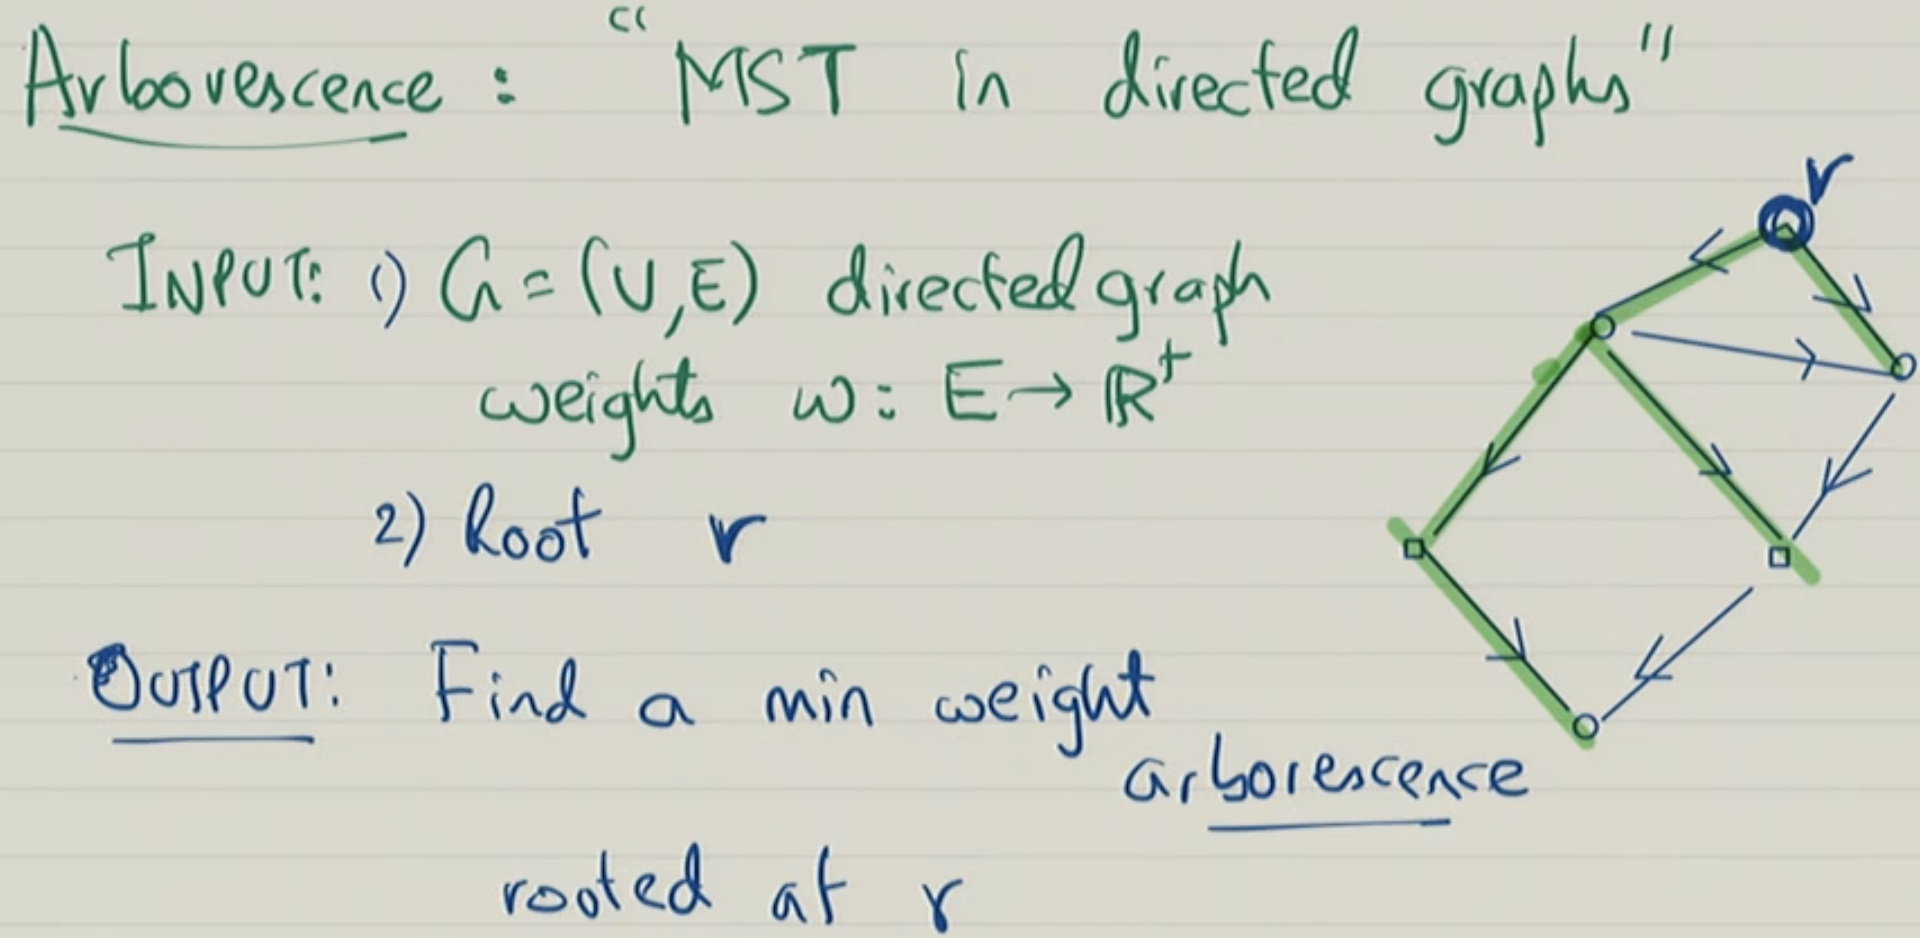 Arborescence : "MST in directed graphs"
r
INPUT: 1) G = (V,E) directed graph
weights w: E → ℝ⁺
2) Root r
OUTPUT: Find a min weight
arborescence
rooted at r